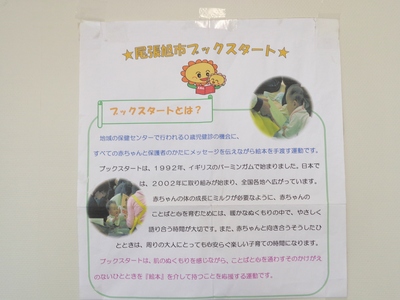 ★尾張旭市ブックスタート★
ブックスタートとは？
地域の保健センターで行われる0歳児健診の機会に、
すべての赤ちゃんと保護者のかたにメッセージを伝えながら絵本を手渡す運動です。
ブックスタートは、1992年、イギリスのバーミンガムで始まりました。日本で
は、2002年に取り組みが始まり、全国各地へ広がっています。
赤ちゃんの体の成長にミルクが必要なように、赤ちゃんの
ことばと心を育むためには、暖かなぬくもりの中で、やさしく
語り合う時間が大切です。また、赤ちゃんと向き合うそうしたひ
とときは、周りの大人にとっても心安らぐ楽しい子育ての時間になります。
ブックスタートは、肌のぬくもりを感じながら、ことばと心を通わすそのかけがえ
のないひとときを「絵本」を介して持つことを応援する運動です。